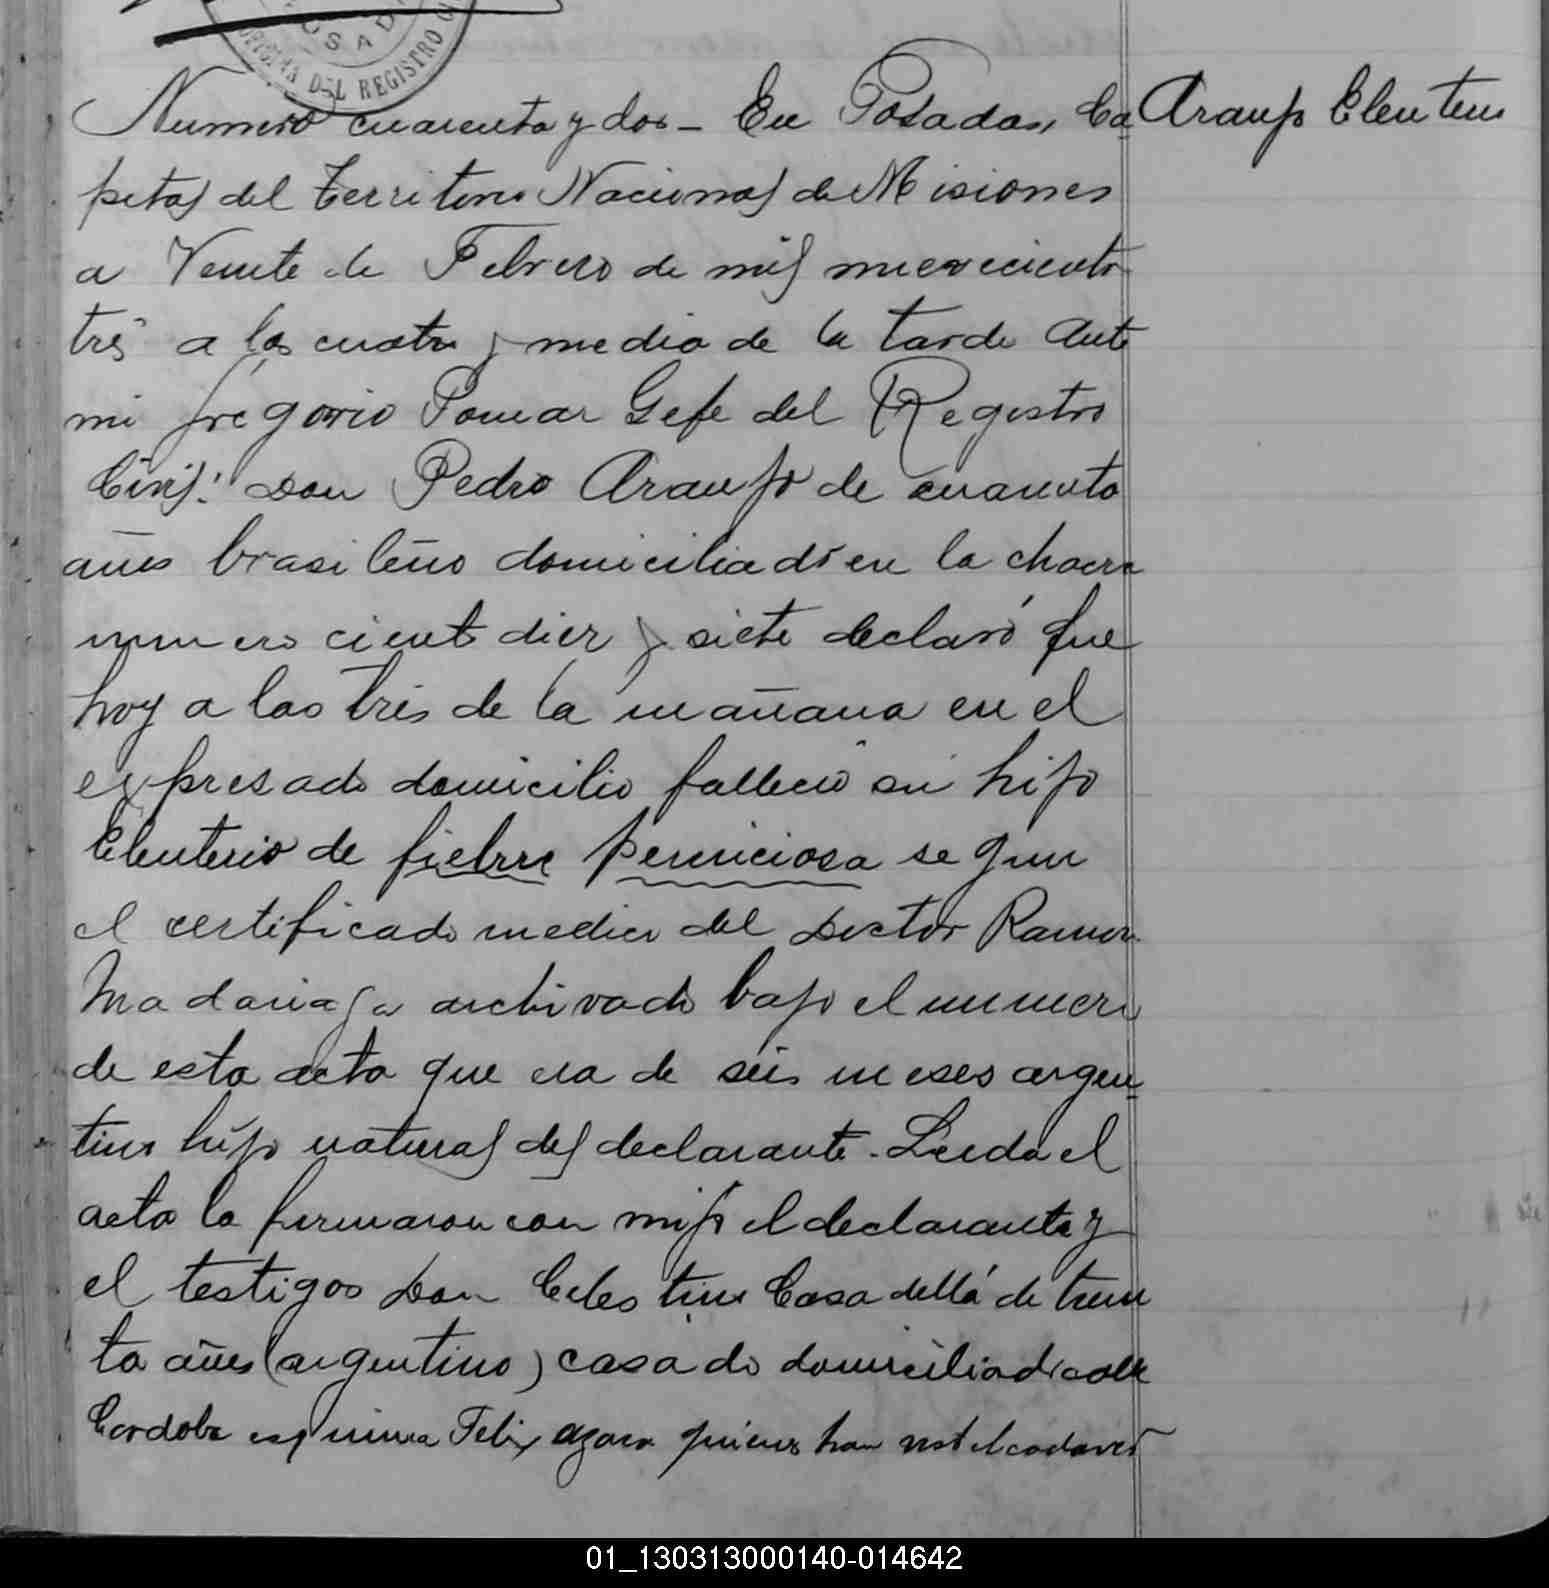 POSADAS
OFICINA DEL REGISTRO CI
Numero cuarenta y dos - En Posadas, Ca
Araujo Eleuterio
pital del Territorio Nacional de Misiones
a Veinte de Febrero de mil novecientos
tres a las cuatro y media de la tarde ante
mi Gregorio Pomar Gefe del Registro
Civil: Don Pedro Araujo de cuarenta
años brasileño domiciliado en la chacra
numero ciento diez y siete declaró que
hoy a las tres de la mañana en el
expresado domicilio falleció su hijo
Eleuterio de fiebre perniciosa segun
el certificado medico del Doctor Ramon
Madariaga archivado bajo el numero
de esta acta que era de seis meses argen
tino hijo natural del declarante. Leida el
acta la firmaron con migo el declarante y
el testigos Don Celestino Casadellá de trein
ta años (argentino) casado domiciliado calle
Cordoba esquina Felix Azara quienes han visto el cadaver
01_130313000140-014642